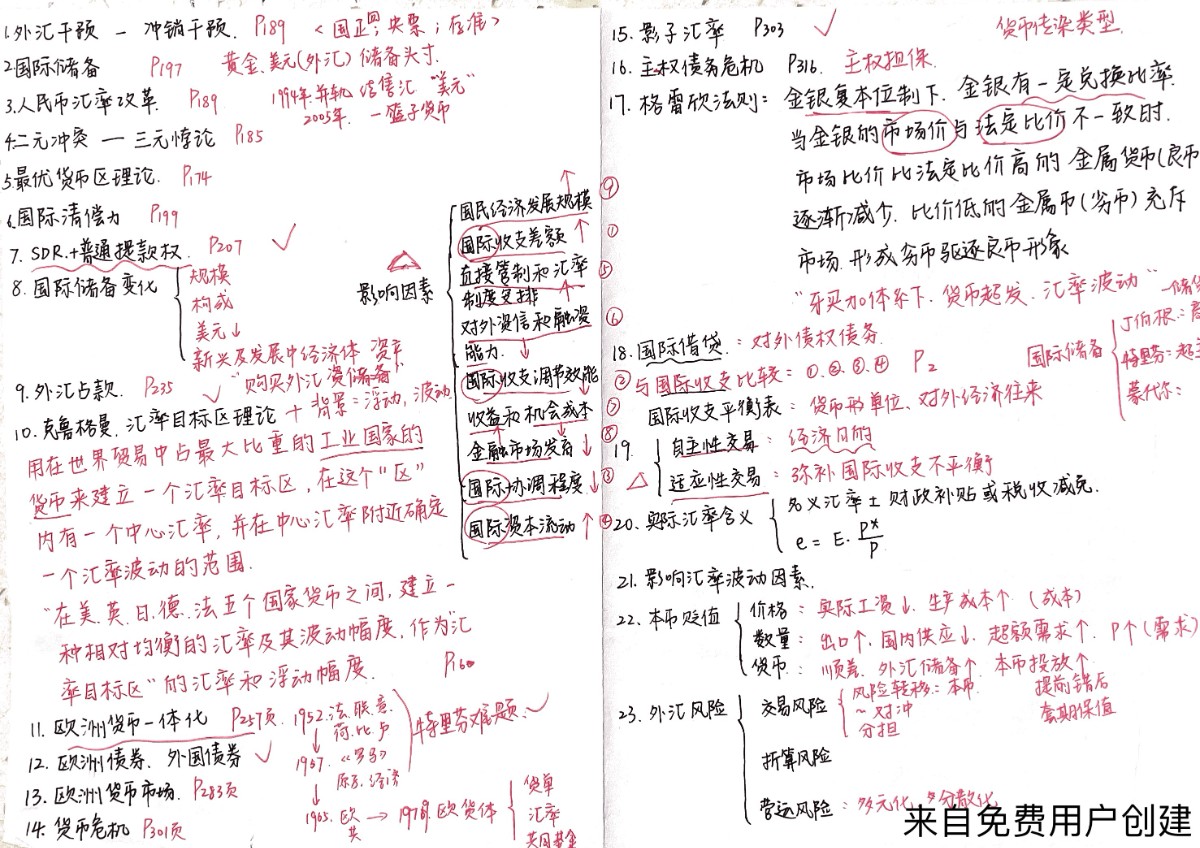 1.外汇干预 — 冲销干预. P189 <国正回;央票;存准>
2国际储备 P197 黄金、美元(外汇)储备头寸.
3.人民币汇率改革. P189. 1994年.并轨 结售汇 "美元"
2005年. 一篮子货币
4.二元冲突 — 三元悖论 P185
5.最优货币区理论. P174
6.国际清偿力 P199
7. SDR.+普通提款权. P207
8. 国际储备变化
规模
构成
美元↓
新兴及发展中经济体 资产
9.外汇占款. P235 "购买外汇 资储备"
10.克鲁格曼.汇率目标区理论 + 背景=浮动,波动.
用在世界贸易中占最大比重的工业国家的
货币来建立一个汇率目标区,在这个"区"
内有一个中心汇率,并在中心汇率附近确定
一个汇率波动的范围.
"在美.英.日.德.法五个国家货币之间,建立一
种相对均衡的汇率及其波动幅度,作为"汇
率目标区"的汇率和浮动幅度. P160
11. 欧洲货币一体化 P257页. 1952.法.联.意.
荷.比.卢
↓
1957.《罗马》
原子.经济
↓
1965.欧共 → 1979.欧货体
货单
汇率
共同基金
特里芬难题.
12. 欧洲债券.外国债券
13. 欧洲货币市场. P283页
14. 货币危机 P301页
影响因素
国民经济发展规模 ↑ ⑨
国际收支差额 ↑ ①
直接管制和汇率 ⑤
制度安排 ↑
对外资信和融资 ⑥
能力. ↓
国际收支调节效能 ↓ ②
收益和机会成本 ↓ ⑦
金融市场发育 ↓ ⑧
国际协调程度 ↓ ③
国际资本流动 ↑ ④
15. 影子汇率 P303 货币传染类型.
16. 主权债务危机 P316. 主权担保.
17. 格雷欣法则: 金银复本位制下.金银有一定兑换比率.
当金银的市场价与法定比价不一致时.
市场比价比法定比价高的金属货币(良币
逐渐减少.比价低的金属币(劣币)充斥
市场.形成劣币驱逐良币形象
"牙买加体系下.货币超发.汇率波动"
18. 国际借贷: 对外债权债务.
与国际收支比较: ①.②.③.④ P2
国际收支平衡表: 货币形单位、对外经济往来
国际储备
特里芬:
蒙代尔:
19.
自主性交易: 经济目的
适应性交易: 弥补国际收支不平衡
20. 实际汇率含义
名义汇率±财政补贴或税收减免.
e = E· P*/P
21. 影响汇率波动因素.
22. 本币贬值
价格: 实际工资↓.生产成本↑ (成本)
数量: 出口↑.国内供应↓.超额需求↑.P↑(需求)
货币: 顺差.外汇储备↑.本币投放↑.
23. 外汇风险
交易风险
风险转移:本币. 提前错后
~ 对冲 套期保值
分担
折算风险
营运风险: 多元化.多分散化
来自免费用户创建